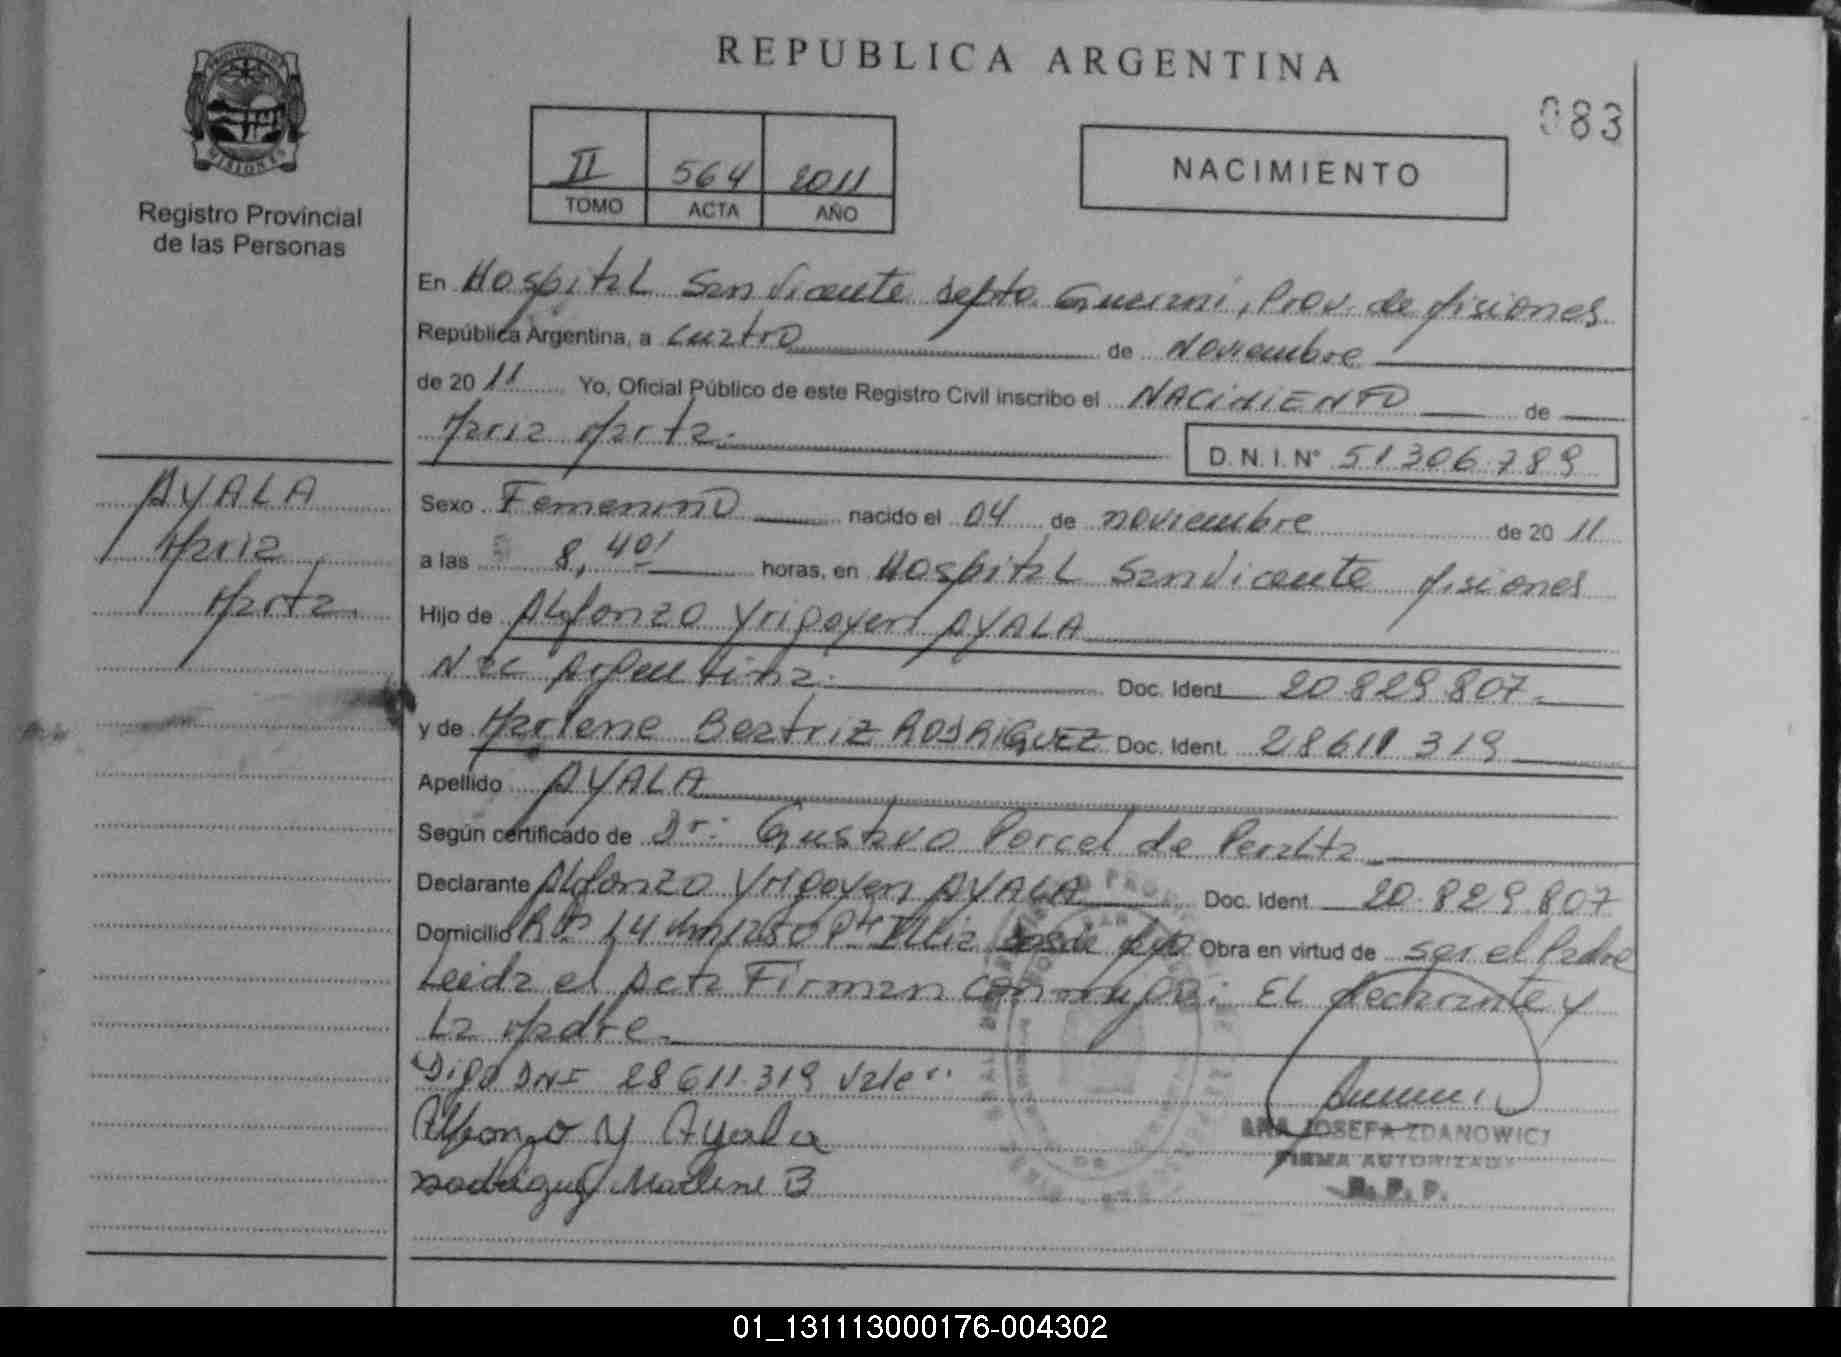 REPUBLICA ARGENTINA
083
PROVINCIA DE
MISIONES
Registro Provincial
de las Personas
II 564 2011
TOMO ACTA AÑO
NACIMIENTO
En Hospital San Vicente depto. Guarani, Prov. de Misiones
República Argentina, a cuatro de Noviembre
de 2011 Yo, Oficial Público de este Registro Civil inscribo el NACIMIENTO de
Maria Marta.
D.N.I.N° 51306.789
AYALA
Maria
Marta.
Sexo Femenino nacido el 04 de noviembre de 2011
a las 8,40' horas, en Hospital San Vicente Misiones
Hijo de Alfonzo Yrigoyen AYALA
Nac Argentina. Doc. Ident. 20.829.807.
y de Marlene Beatriz RODRIGUEZ Doc. Ident. 28611 319
Apellido AYALA
Según certificado de Dr: Gustavo Porcel de Peralta
Declarante Alfonzo Yrigoyen AYALA Doc. Ident. 20.829.807
Domicilio 14 km 1280 Obra en virtud de ser el Padre
Leida el Acta Firman conmigo: EL declarante y
La Madre.
Digo DNI 28611.319 Vale.
Alfonzo Y Ayala
Rodriguez Marlene B
ANA JOSEFA ZDANOWICZ
FIRMA AUTORIZADA
R. P. P.
01_131113000176-004302